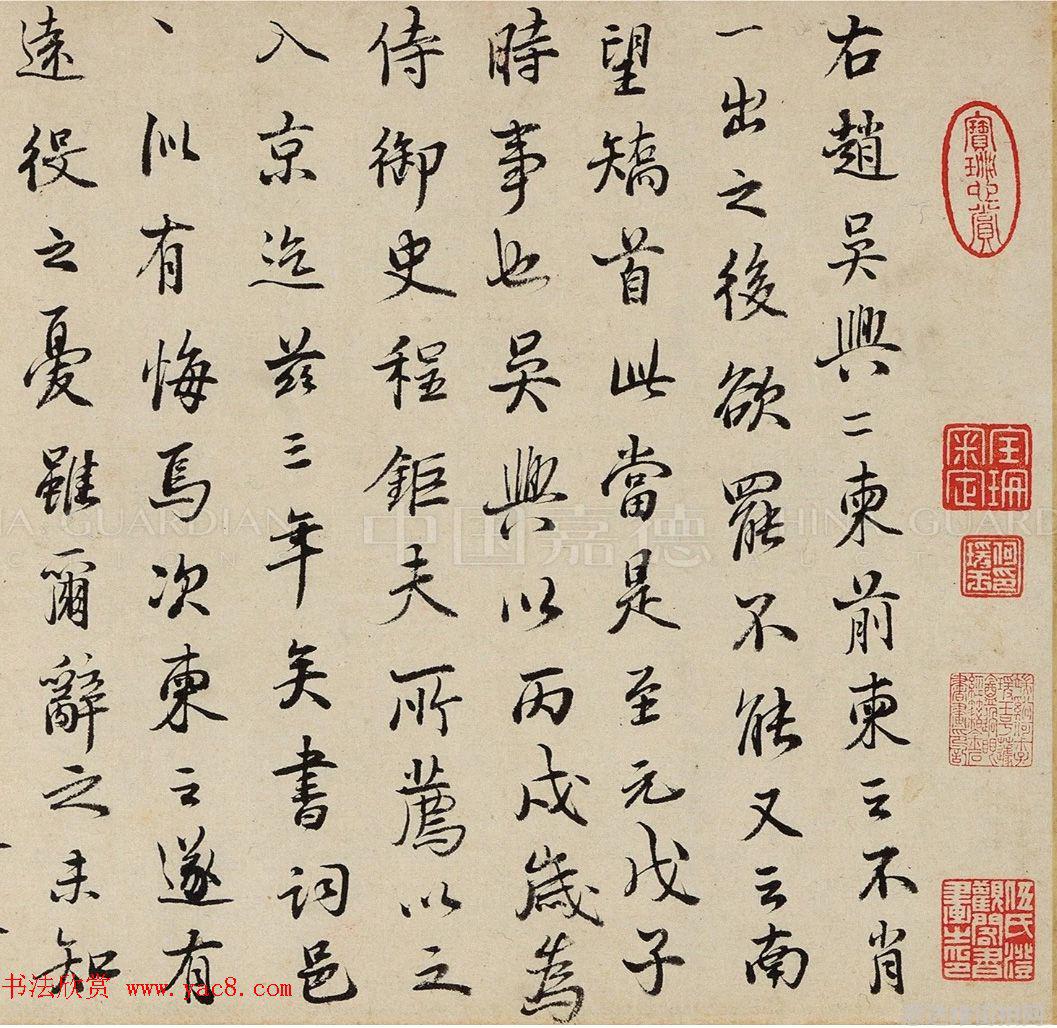 右趙吳興二柬前柬云不肖
一出之後欲罷不能又云南
望矯首此當是至元戊子
時事也吳興以丙戌歲為
侍御史程鉅夫所薦以之
入京迄茲三年矣書詞邑
丶似有悔焉次柬云遂有
遠役之憂雖爾辭之未知
伍氏澄觀閣書畫之印
中国嘉德
CHINA GUARDIAN
书法欣赏 www.yac8.com